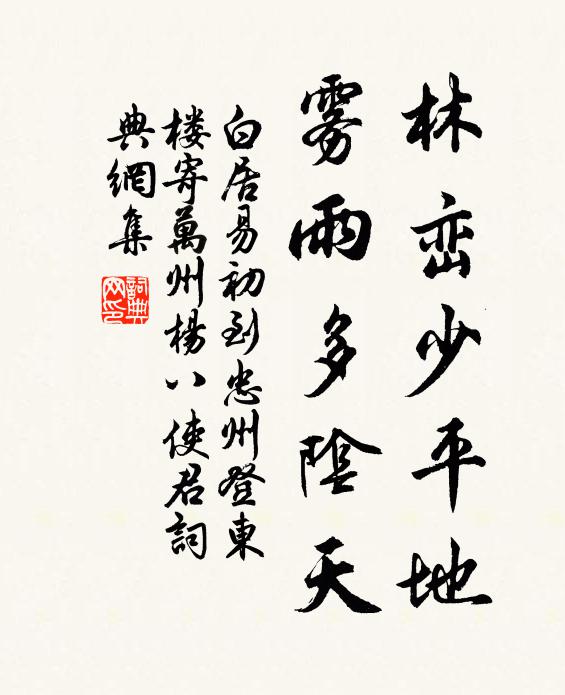 林峦少平地
雾雨多陰天
白居易初到忠州登東
楼寄萬州楊八使君詞
典網集
詞典网印